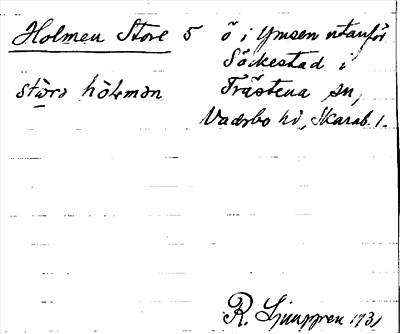 Holmen Store 5 ö i Ymsen utanför
Säckestad i
störa hòlmən Trästena sn,
Vadsbo hd, Skarab. l.
R. Ljunggren 1931